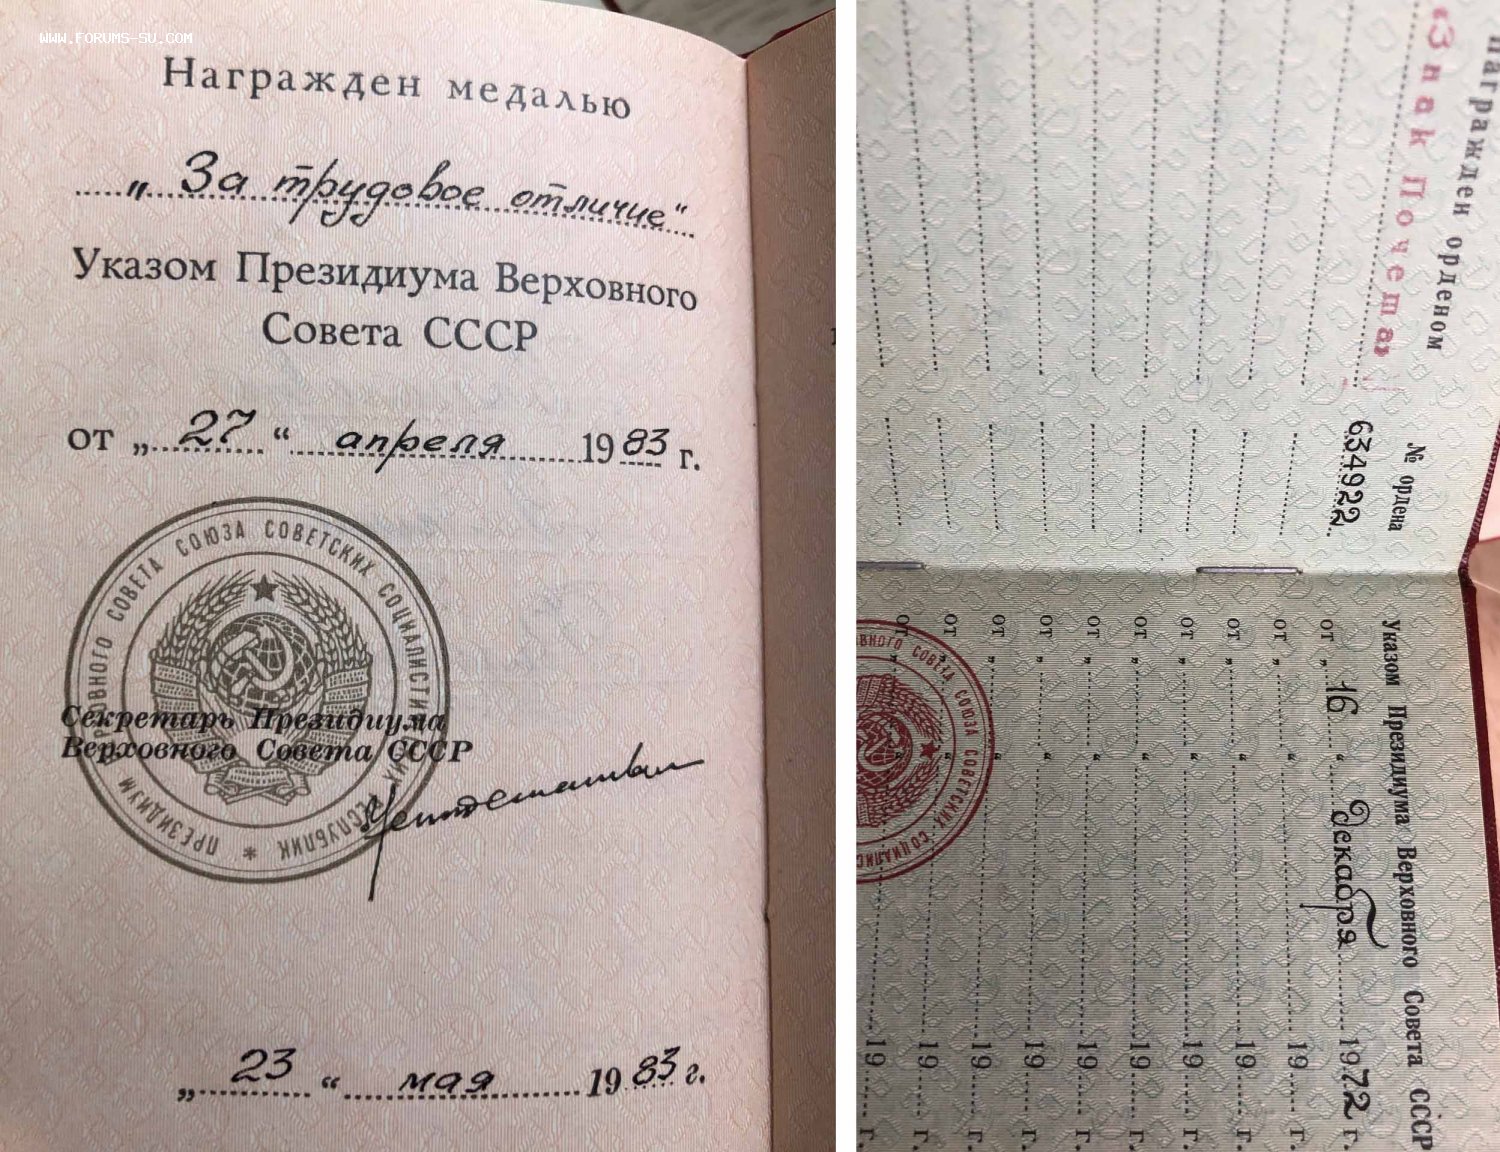 WWW.FORUMS-SU.COM
Награжден медалью
„ За трудовое отличие“
Указом Президиума Верховного
Совета СССР
от „ 27 “ апреля 1983 г.
СОВЕТА СОЮЗА СОВЕТСКИХ СОЦИАЛИСТИ
ПРЕЗИДИУМ
Секретарь Президиума
Верховного Совета СССР
„ 23 “ мая 1983 г.
Награжден орденом
«Знак Почета»
№ ордена
634922
Указом Президиума Верховного Совета СССР
от „ 16 “ декабря 1972 г.
от „ “ 19 г.
от „ “ 19 г.
от „ “ 19 г.
от „ “ 19 г.
от „ “ 19 г.
от „ “ 19 г.
от „ “ 19 г.
от „ “ 19 г.
от „ “ 19 г.
ВНОГО СОВЕТА СОЮЗА СОВЕТСКИХ СОЦИАЛИС